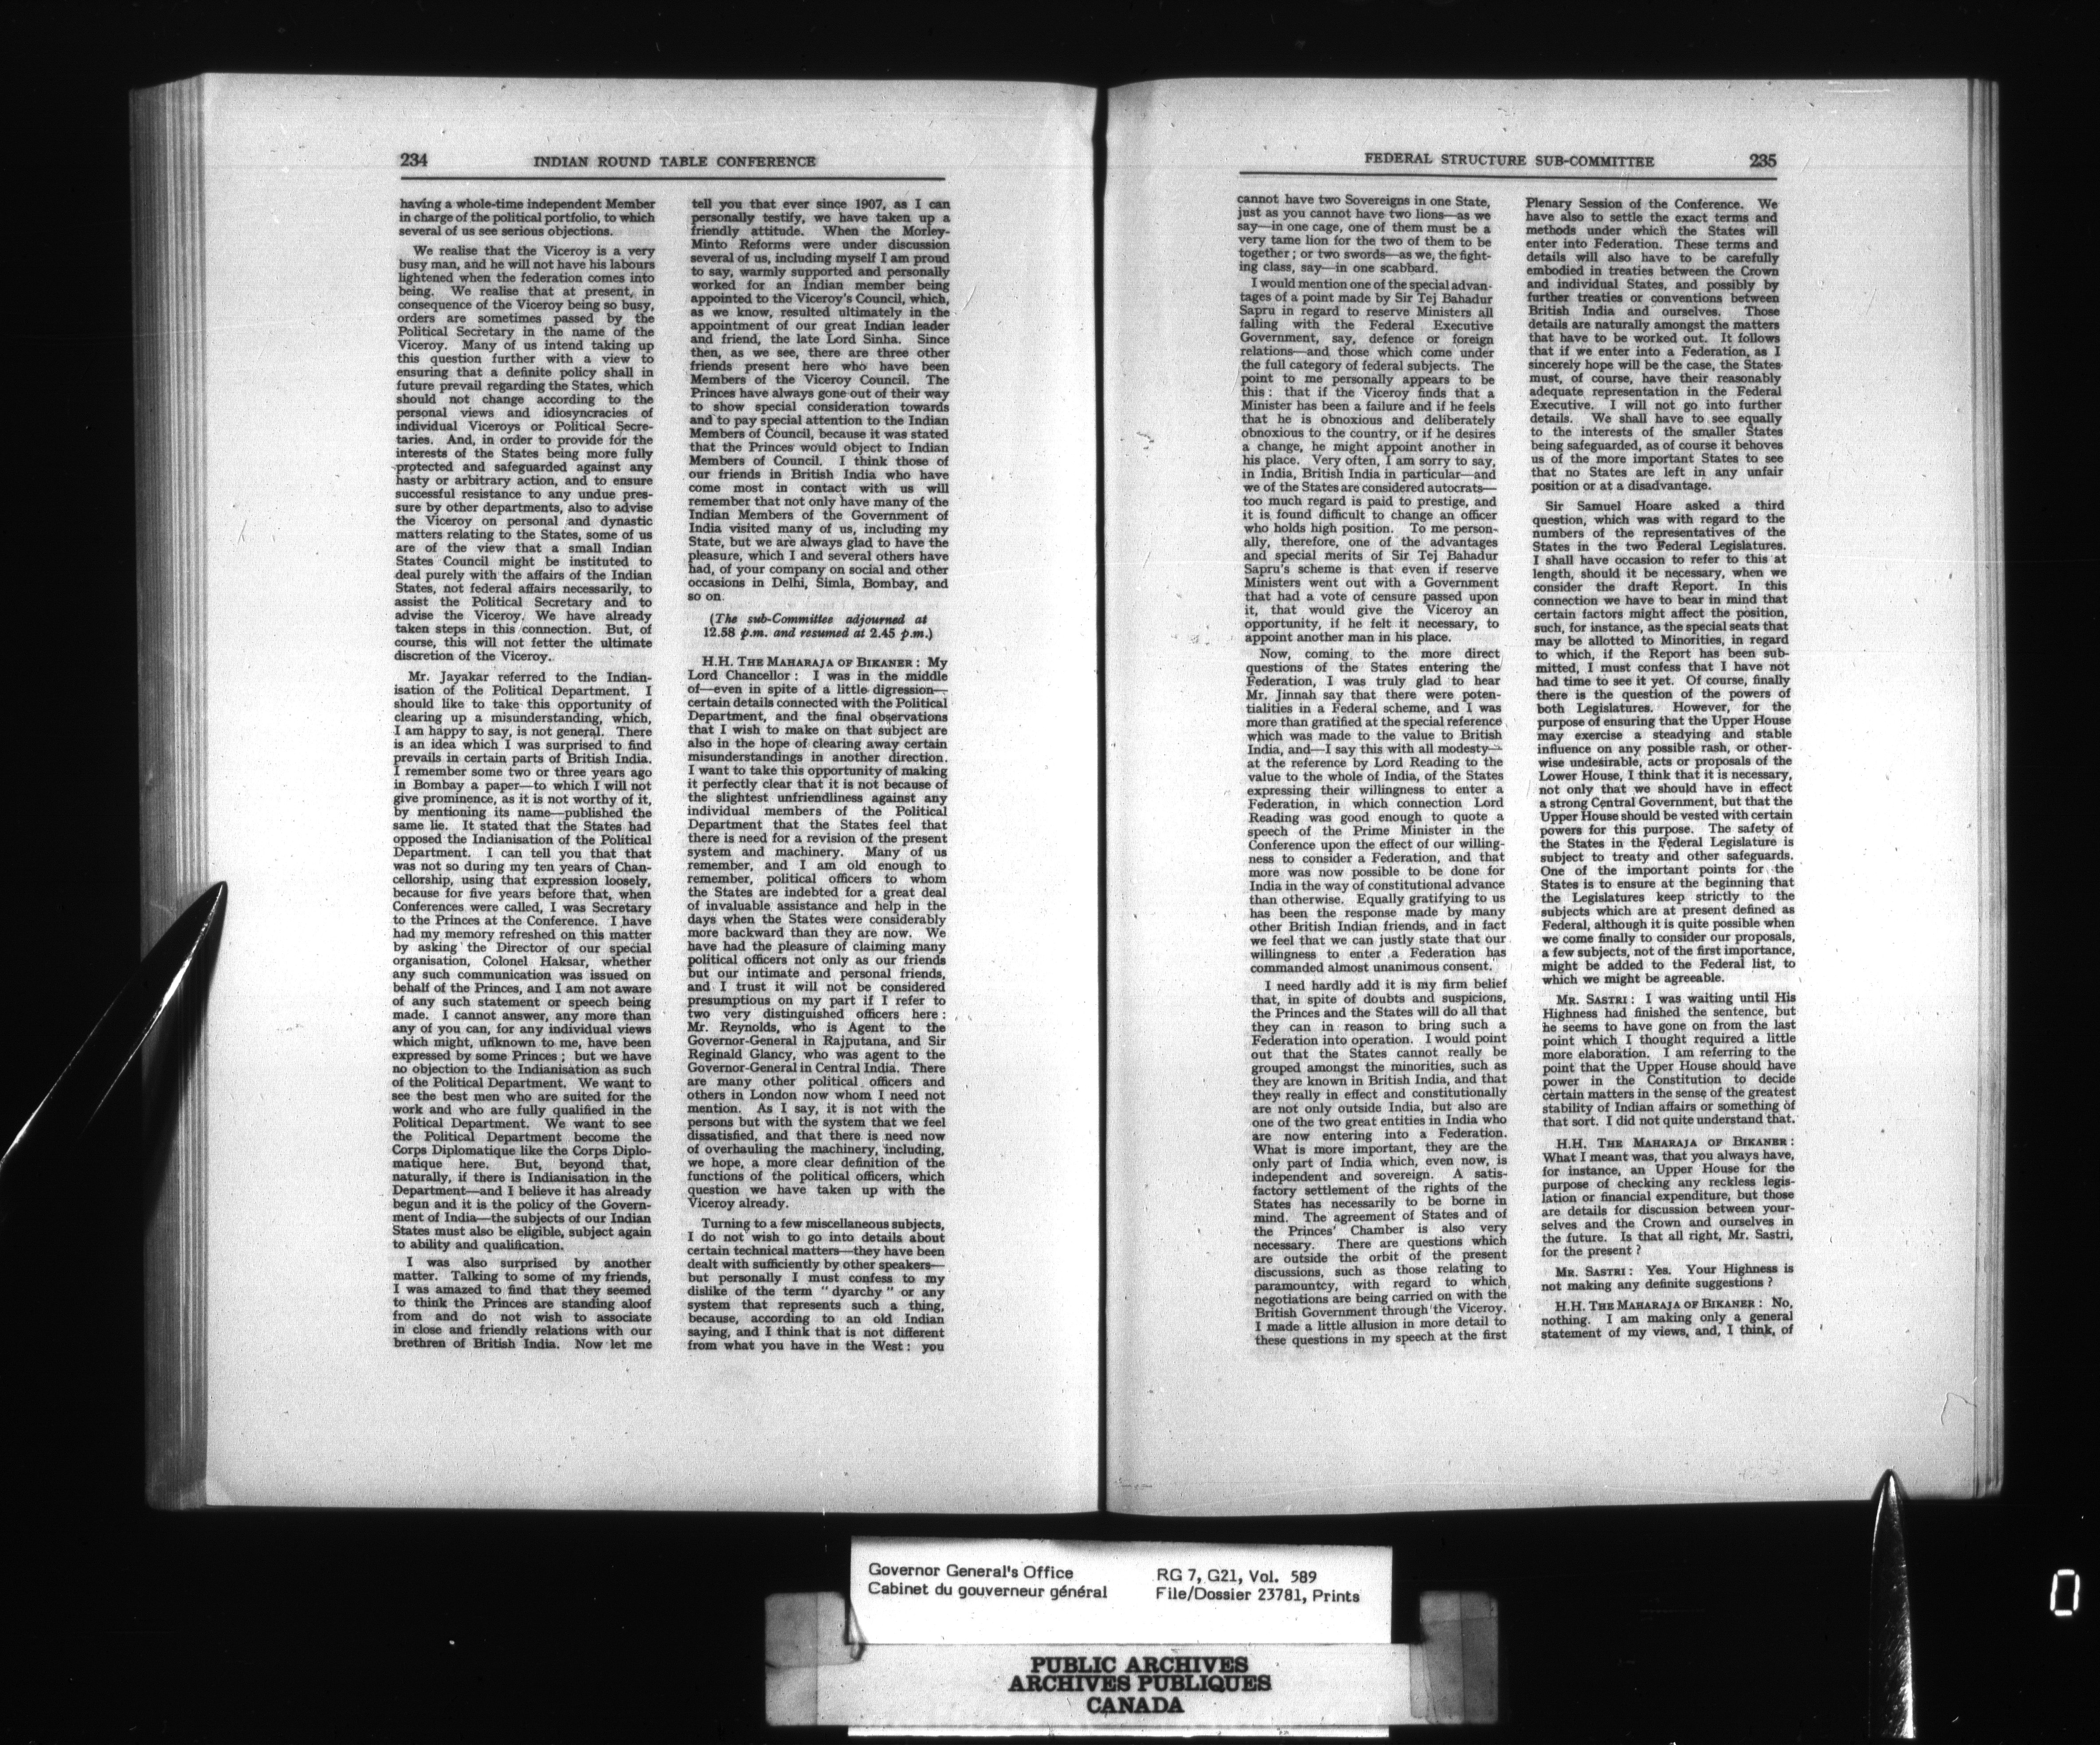 234 INDIAN ROUND TABLE CONFERENCE
having a whole-time independent Member
in charge of the political portfolio, to which
several of us see serious objections.
We realise that the Viceroy is a very
busy man, and he will not have his labours
lightened when the federation comes into
being. We realise that at present, in
consequence of the Viceroy being so busy,
orders are sometimes passed by the
Political Secretary in the name of the
Viceroy. Many of us intend taking up
this question further with a view to
ensuring that a definite policy shall in
future prevail regarding the States, which
should not change according to the
personal views and idiosyncracies of
individual Viceroys or Political Secre-
taries. And, in order to provide for the
interests of the States being more fully
protected and safeguarded against any
hasty or arbitrary action, and to ensure
successful resistance to any undue pres-
sure by other departments, also to advise
the Viceroy on personal and dynastic
matters relating to the States, some of us
are of the view that a small Indian
States Council might be instituted to
deal purely with the affairs of the Indian
States, not federal affairs necessarily, to
assist the Political Secretary and to
advise the Viceroy. We have already
taken steps in this connection. But, of
course, this will not fetter the ultimate
discretion of the Viceroy.
Mr. Jayakar referred to the Indian-
isation of the Political Department. I
should like to take this opportunity of
clearing up a misunderstanding, which,
I am happy to say, is not general. There
is an idea which I was surprised to find
prevails in certain parts of British India.
I remember some two or three years ago
in Bombay a paper—to which I will not
give prominence, as it is not worthy of it,
by mentioning its name—published the
same lie. It stated that the States had
opposed the Indianisation of the Political
Department. I can tell you that that
was not so during my ten years of Chan-
cellorship, using that expression loosely,
because for five years before that, when
Conferences were called, I was Secretary
to the Princes at the Conference. I have
had my memory refreshed on this matter
by asking the Director of our special
organisation, Colonel Haksar, whether
any such communication was issued on
behalf of the Princes, and I am not aware
of any such statement or speech being
made. I cannot answer, any more than
any of you can, for any individual views
which might, unknown to me, have been
expressed by some Princes; but we have
no objection to the Indianisation as such
of the Political Department. We want to
see the best men who are suited for the
work and who are fully qualified in the
Political Department. We want to see
the Political Department become the
Corps Diplomatique like the Corps Diplo-
matique here. But, beyond that,
naturally, if there is Indianisation in the
Department—and I believe it has already
begun and it is the policy of the Govern-
ment of India—the subjects of our Indian
States must also be eligible, subject again
to ability and qualification.
I was also surprised by another
matter. Talking to some of my friends,
I was amazed to find that they seemed
to think the Princes are standing aloof
from and do not wish to associate
in close and friendly relations with our
brethren of British India. Now let me
tell you that ever since 1907, as I can
personally testify, we have taken up a
friendly attitude. When the Morley-
Minto Reforms were under discussion
several of us, including myself I am proud
to say, warmly supported and personally
worked for an Indian member being
appointed to the Viceroy's Council, which,
as we know, resulted ultimately in the
appointment of our great Indian leader
and friend, the late Lord Sinha. Since
then, as we see, there are three other
friends present here who have been
Members of the Viceroy Council. The
Princes have always gone out of their way
to show special consideration towards
and to pay special attention to the Indian
Members of Council, because it was stated
that the Princes would object to Indian
Members of Council. I think those of
our friends in British India who have
come most in contact with us will
remember that not only have many of the
Indian Members of the Government of
India visited many of us, including my
State, but we are always glad to have the
pleasure, which I and several others have
had, of your company on social and other
occasions in Delhi, Simla, Bombay, and
so on.
(The sub-Committee adjourned at
12.58 p.m. and resumed at 2.45 p.m.)
H.H. THE MAHARAJA OF BIKANER: My
Lord Chancellor: I was in the middle
of—even in spite of a little digression—
certain details connected with the Political
Department, and the final observations
that I wish to make on that subject are
also in the hope of clearing away certain
misunderstandings in another direction.
I want to take this opportunity of making
it perfectly clear that it is not because of
the slightest unfriendliness against any
individual members of the Political
Department that the States feel that
there is need for a revision of the present
system and machinery. Many of us
remember, and I am old enough to
remember, political officers to whom
the States are indebted for a great deal
of invaluable assistance and help in the
days when the States were considerably
more backward than they are now. We
have had the pleasure of claiming many
political officers not only as our friends
but our intimate and personal friends,
and I trust it will not be considered
presumptious on my part if I refer to
two very distinguished officers here:
Mr. Reynolds, who is Agent to the
Governor-General in Rajputana, and Sir
Reginald Glancy, who was agent to the
Governor-General in Central India. There
are many other political officers and
others in London now whom I need not
mention. As I say, it is not with the
persons but with the system that we feel
dissatisfied, and that there is need now
of overhauling the machinery, including,
we hope, a more clear definition of the
functions of the political officers, which
question we have taken up with the
Viceroy already.
Turning to a few miscellaneous subjects,
I do not wish to go into details about
certain technical matters—they have been
dealt with sufficiently by other speakers—
but personally I must confess to my
dislike of the term " dyarchy " or any
system that represents such a thing,
because, according to an old Indian
saying, and I think that is not different
from what you have in the West: you
FEDERAL STRUCTURE SUB-COMMITTEE 235
cannot have two Sovereigns in one State,
just as you cannot have two lions—as we
say—in one cage, one of them must be a
very tame lion for the two of them to be
together; or two swords—as we, the fight-
ing class, say—in one scabbard.
I would mention one of the special advan-
tages of a point made by Sir Tej Bahadur
Sapru in regard to reserve Ministers all
falling with the Federal Executive
Government, say, defence or foreign
relations—and those which come under
the full category of federal subjects. The
point to me personally appears to be
this: that if the Viceroy finds that a
Minister has been a failure and if he feels
that he is obnoxious and deliberately
obnoxious to the country, or if he desires
a change, he might appoint another in
his place. Very often, I am sorry to say,
in India, British India in particular—and
we of the States are considered autocrats—
too much regard is paid to prestige, and
it is found difficult to change an officer
who holds high position. To me person-
ally, therefore, one of the advantages
and special merits of Sir Tej Bahadur
Sapru's scheme is that even if reserve
Ministers went out with a Government
that had a vote of censure passed upon
it, that would give the Viceroy an
opportunity, if he felt it necessary, to
appoint another man in his place.
Now, coming to the more direct
questions of the States entering the
Federation, I was truly glad to hear
Mr. Jinnah say that there were poten-
tialities in a Federal scheme, and I was
more than gratified at the special reference
which was made to the value to British
India, and—I say this with all modesty—
at the reference by Lord Reading to the
value to the whole of India, of the States
expressing their willingness to enter a
Federation, in which connection Lord
Reading was good enough to quote a
speech of the Prime Minister in the
Conference upon the effect of our willing-
ness to consider a Federation, and that
more was now possible to be done for
India in the way of constitutional advance
than otherwise. Equally gratifying to us
has been the response made by many
other British Indian friends, and in fact
we feel that we can justly state that our
willingness to enter a Federation has
commanded almost unanimous consent.
I need hardly add it is my firm belief
that, in spite of doubts and suspicions,
the Princes and the States will do all that
they can in reason to bring such a
Federation into operation. I would point
out that the States cannot really be
grouped amongst the minorities, such as
they are known in British India, and that
they really in effect and constitutionally
are not only outside India, but also are
one of the two great entities in India who
are now entering into a Federation.
What is more important, they are the
only part of India which, even now, is
independent and sovereign. A satis-
factory settlement of the rights of the
States has necessarily to be borne in
mind. The agreement of States and of
the Princes' Chamber is also very
necessary. There are questions which
are outside the orbit of the present
discussions, such as those relating to
paramountcy, with regard to which,
negotiations are being carried on with the
British Government through the Viceroy.
I made a little allusion in more detail to
these questions in my speech at the first
Plenary Session of the Conference. We
have also to settle the exact terms and
methods under which the States will
enter into Federation. These terms and
details will also have to be carefully
embodied in treaties between the Crown
and individual States, and possibly by
further treaties or conventions between
British India and ourselves. Those
details are naturally amongst the matters
that have to be worked out. It follows
that if we enter into a Federation, as I
sincerely hope will be the case, the States
must, of course, have their reasonably
adequate representation in the Federal
Executive. I will not go into further
details. We shall have to see equally
to the interests of the smaller States
being safeguarded, as of course it behoves
us of the more important States to see
that no States are left in any unfair
position or at a disadvantage.
Sir Samuel Hoare asked a third
question, which was with regard to the
numbers of the representatives of the
States in the two Federal Legislatures.
I shall have occasion to refer to this at
length, should it be necessary, when we
consider the draft Report. In this
connection we have to bear in mind that
certain factors might affect the position,
such, for instance, as the special seats that
may be allotted to Minorities, in regard
to which, if the Report has been sub-
mitted, I must confess that I have not
had time to see it yet. Of course, finally
there is the question of the powers of
both Legislatures. However, for the
purpose of ensuring that the Upper House
may exercise a steadying and stable
influence on any possible rash, or other-
wise undesirable, acts or proposals of the
Lower House, I think that it is necessary,
not only that we should have in effect
a strong Central Government, but that the
Upper House should be vested with certain
powers for this purpose. The safety of
the States in the Federal Legislature is
subject to treaty and other safeguards.
One of the important points for the
States is to ensure at the beginning that
the Legislatures keep strictly to the
subjects which are at present defined as
Federal, although it is quite possible when
we come finally to consider our proposals,
a few subjects, not of the first importance,
might be added to the Federal list, to
which we might be agreeable.
MR. SASTRI: I was waiting until His
Highness had finished the sentence, but
he seems to have gone on from the last
point which I thought required a little
more elaboration. I am referring to the
point that the Upper House should have
power in the Constitution to decide
certain matters in the sense of the greatest
stability of Indian affairs or something of
that sort. I did not quite understand that.
H.H. THE MAHARAJA OF BIKANER:
What I meant was, that you always have,
for instance, an Upper House for the
purpose of checking any reckless legis-
lation or financial expenditure, but those
are details for discussion between your-
selves and the Crown and ourselves in
the future. Is that all right, Mr. Sastri,
for the present?
MR. SASTRI: Yes. Your Highness is
not making any definite suggestions?
H.H. THE MAHARAJA OF BIKANER: No,
nothing. I am making only a general
statement of my views, and, I think, of
Governor General's Office
Cabinet du gouverneur général
RG 7, G21, Vol. 589
File/Dossier 23781, Prints
PUBLIC ARCHIVES
ARCHIVES PUBLIQUES
CANADA